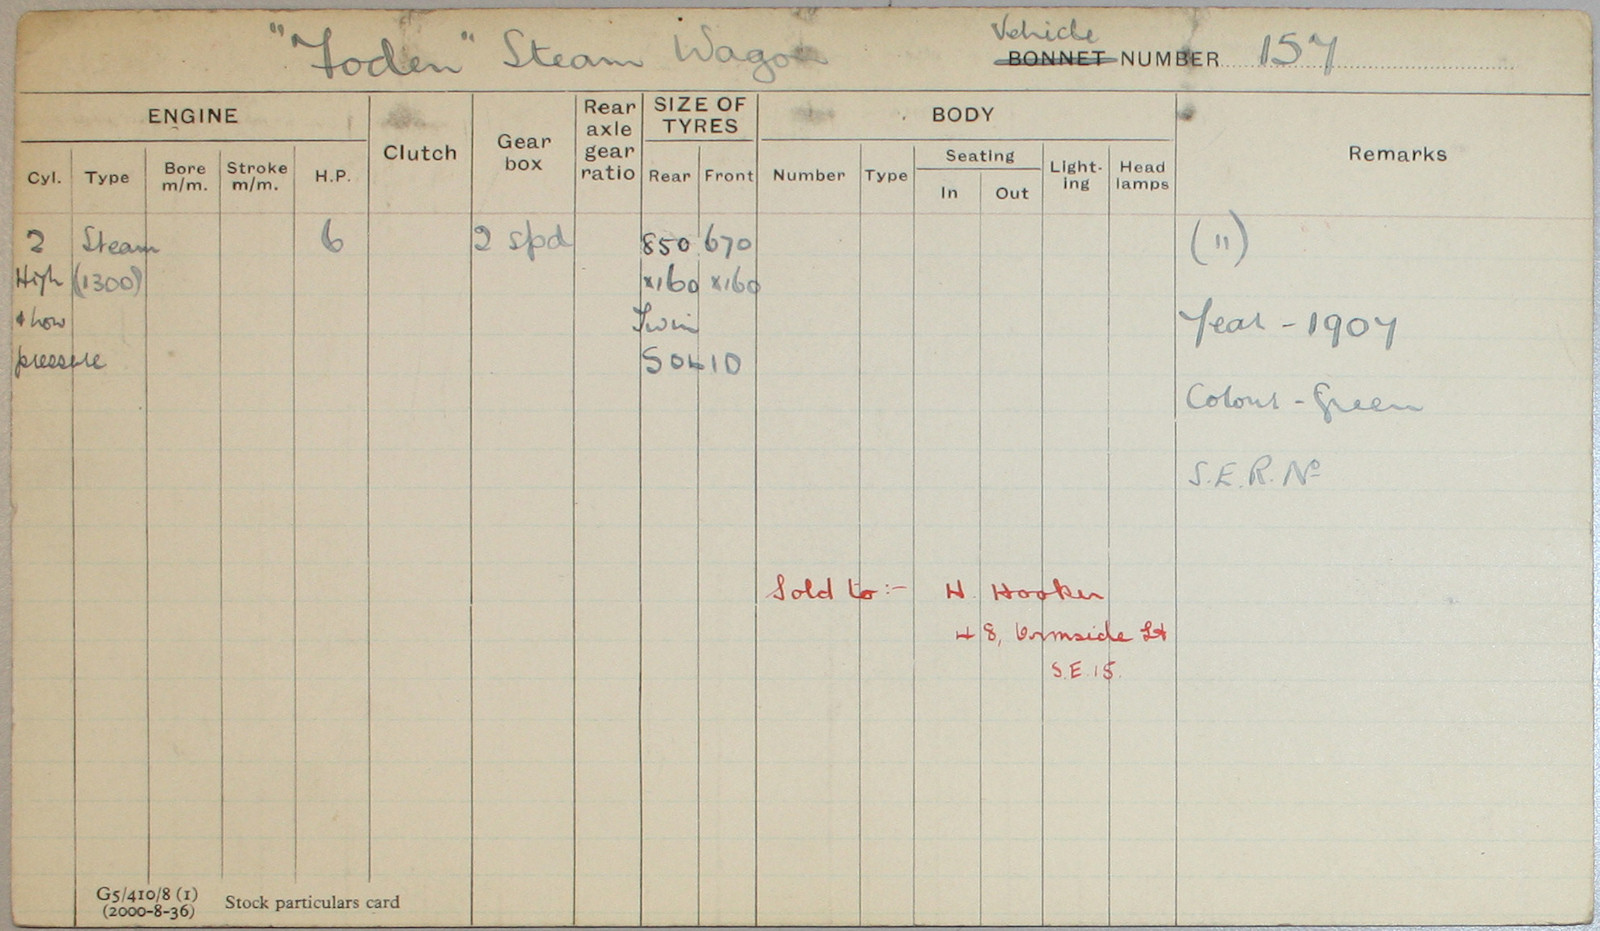 "Foden" Steam Wagon Vehicle
BONNET NUMBER 157
ENGINE
Clutch
Gear box
Rear axle gear ratio
SIZE OF TYRES
BODY
Remarks
Cyl. Type Bore m/m. Stroke m/m. H.P.
Rear Front
Number Type
Seating
In Out
Light-ing
Head lamps
2 Steam 6 2 spd 850 670 (11)
High (1300) x160 x160
& Low Twin Year - 1907
pressure SOLID
Colour - Green
S.E.R. No
Sold to :- H. Hooker
48, Ormside St
S.E.15.
G5/410/8 (1)
(2000-8-36)
Stock particulars card